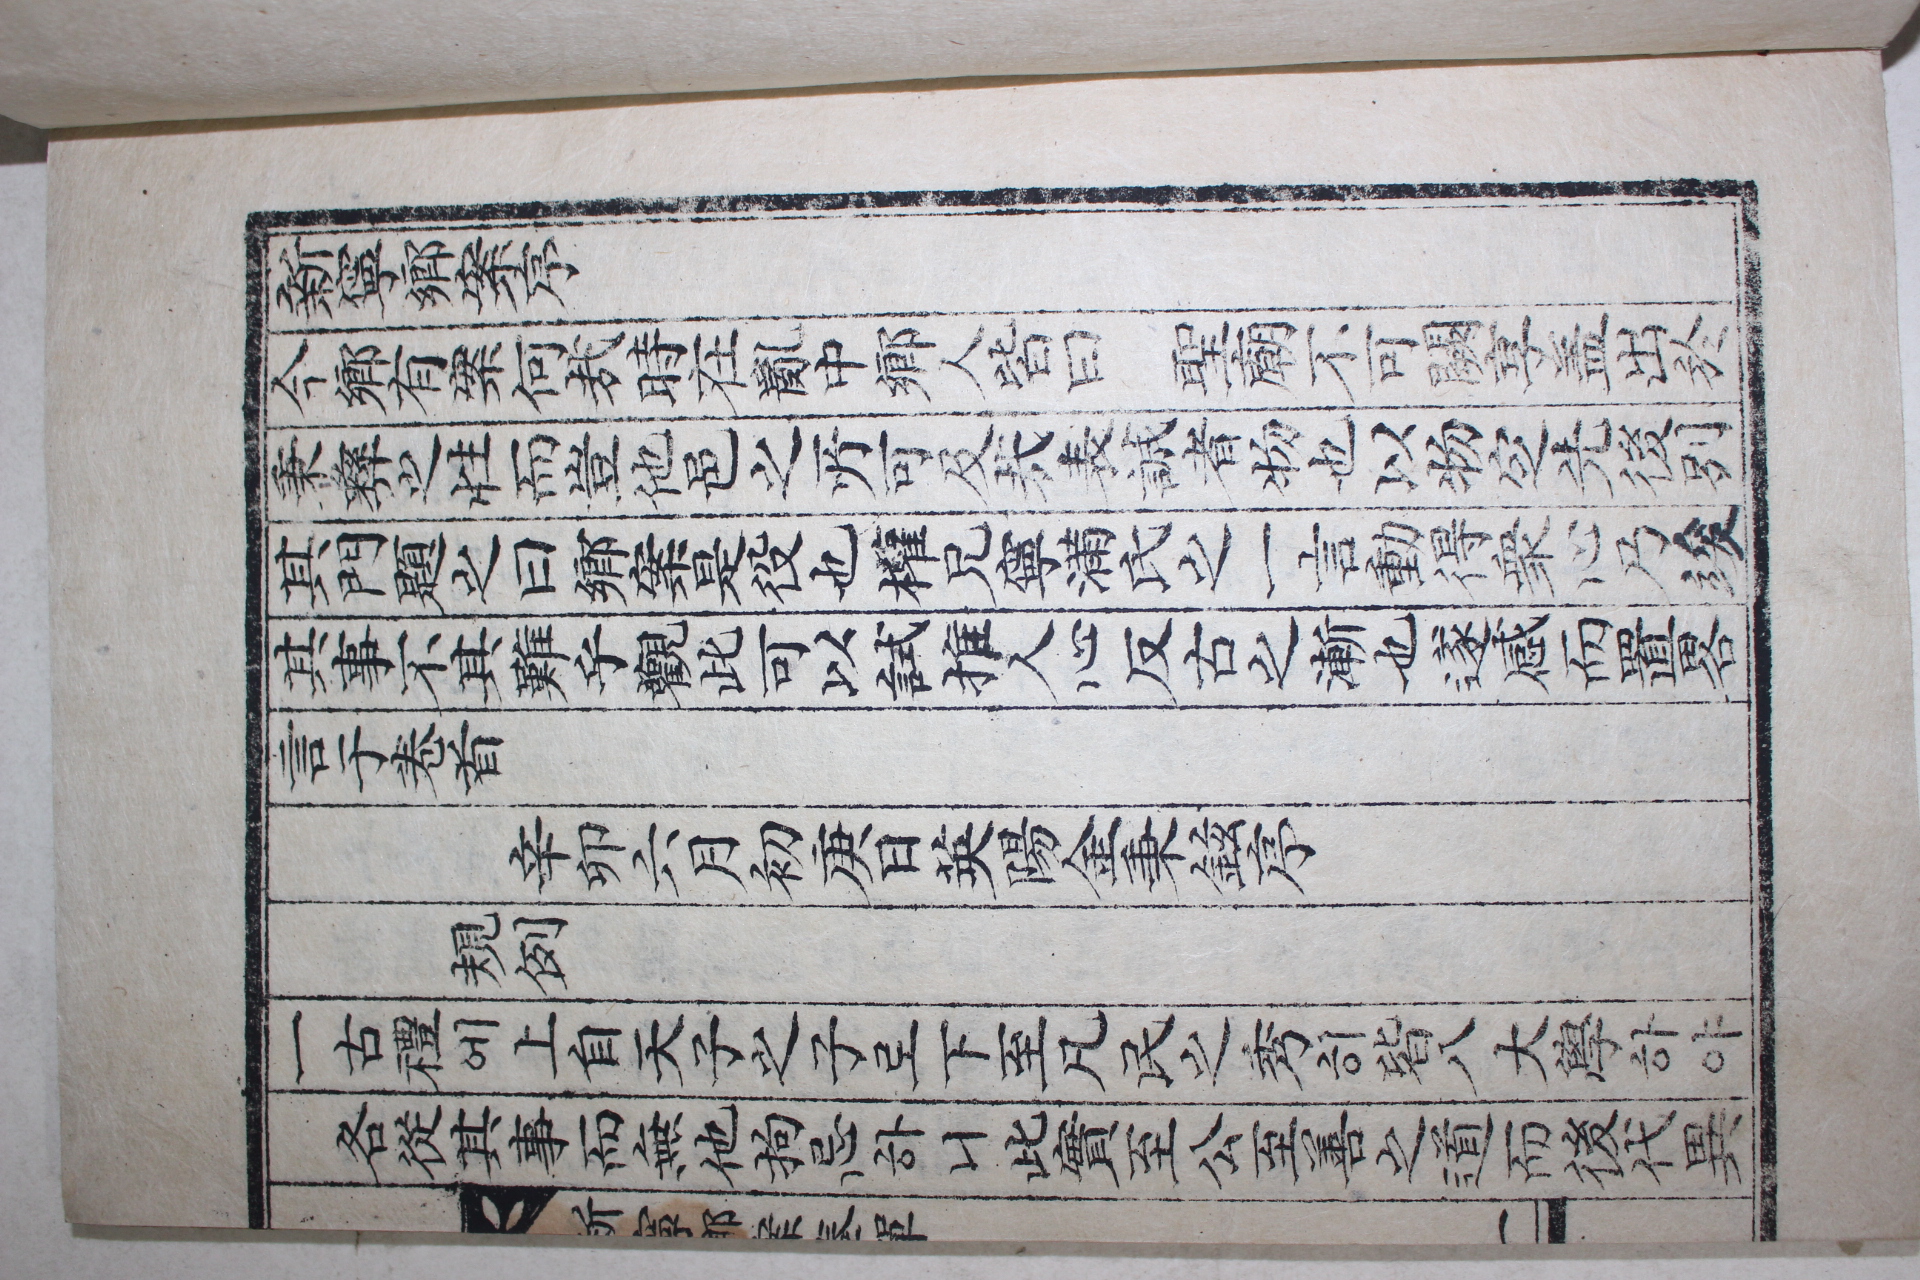 新寧鄕案序
今鄕有案何哉時在亂中鄕人皆曰 聖廟不可闕享盖出於
秉彛之性而豈他邑之所可及哉表誠者物也以物定先後列
其門題之曰鄕案是役也權兄寧浦氏之一言動得衆心乃竣
其事不其難乎觀此可以試推人心反古之漸也遂感而畧
言于卷首
辛卯六月初庚日英陽金秉銓序
規例
一古禮에上自天子之子로下至凡民之秀히皆入大學하야
各從其事而無他拘忌하니此實至公至善之道而後代異
新寧鄕案
二